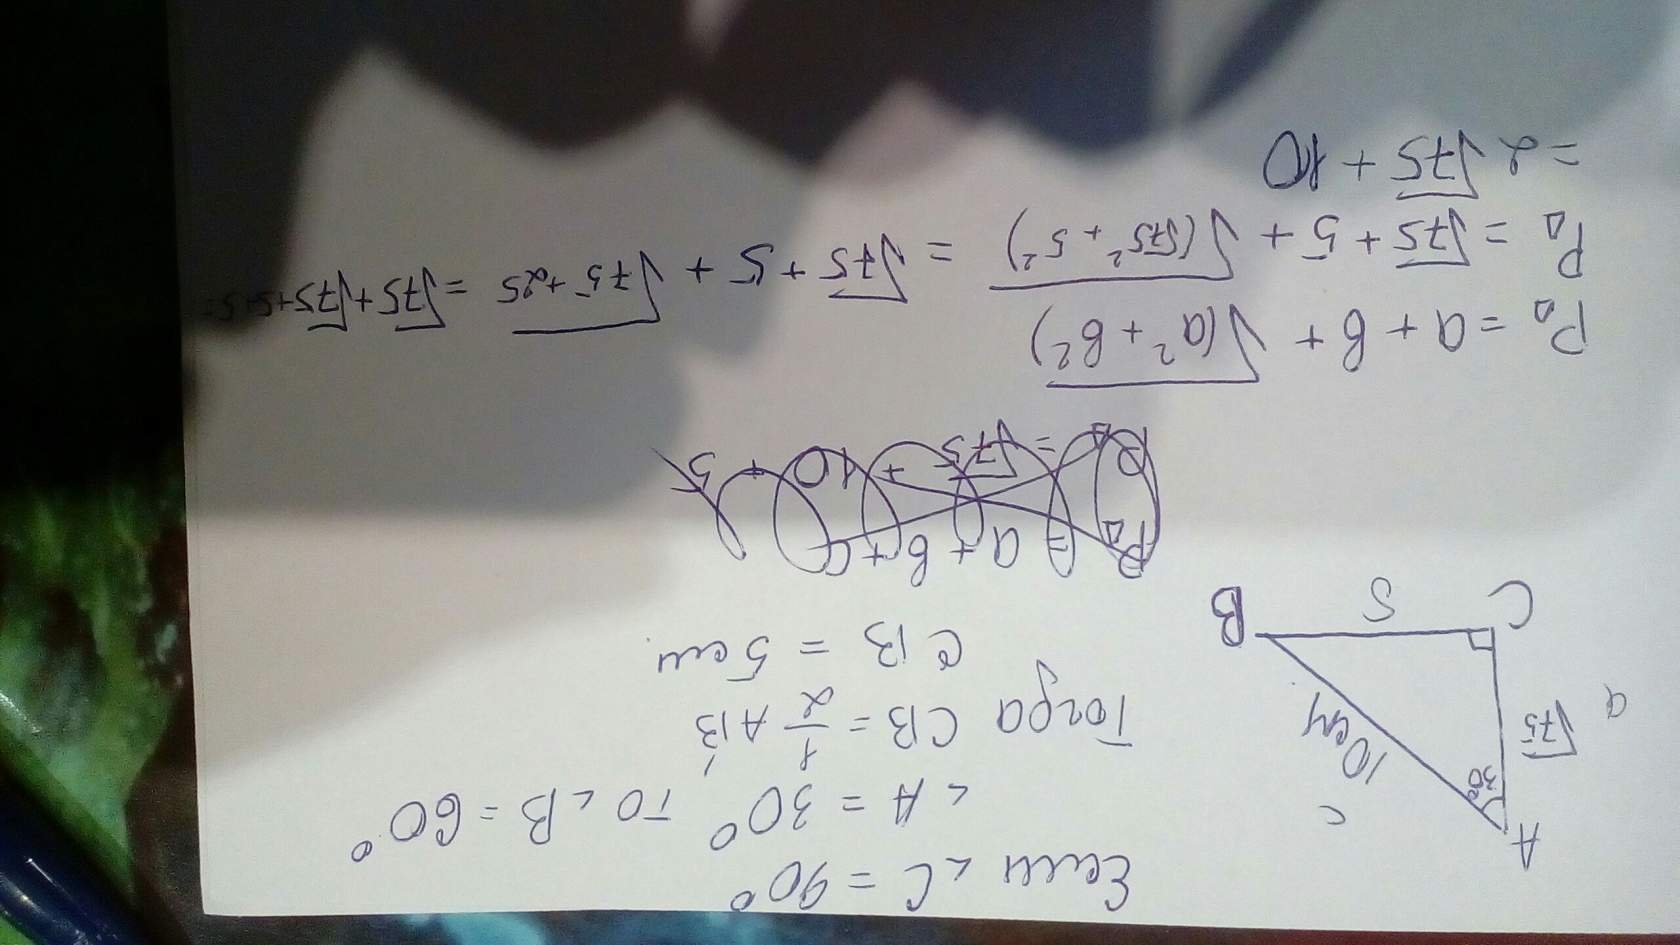 Если ∠C = 90°
∠A = 30° то ∠B = 60°
Тогда CB = 1/2 AB,
CB = 5 см.
A
30°
√75
a
10 см
c
C
5
B
P△ = a + b + c
P△ = √75 + 10 + 5
P△ = a + b + √(a² + b²)
P△ = √75 + 5 + √(√75² + 5²) = √75 + 5 + √75 + 25 = √75 + √75 + 5 + 5 =
= 2√75 + 10